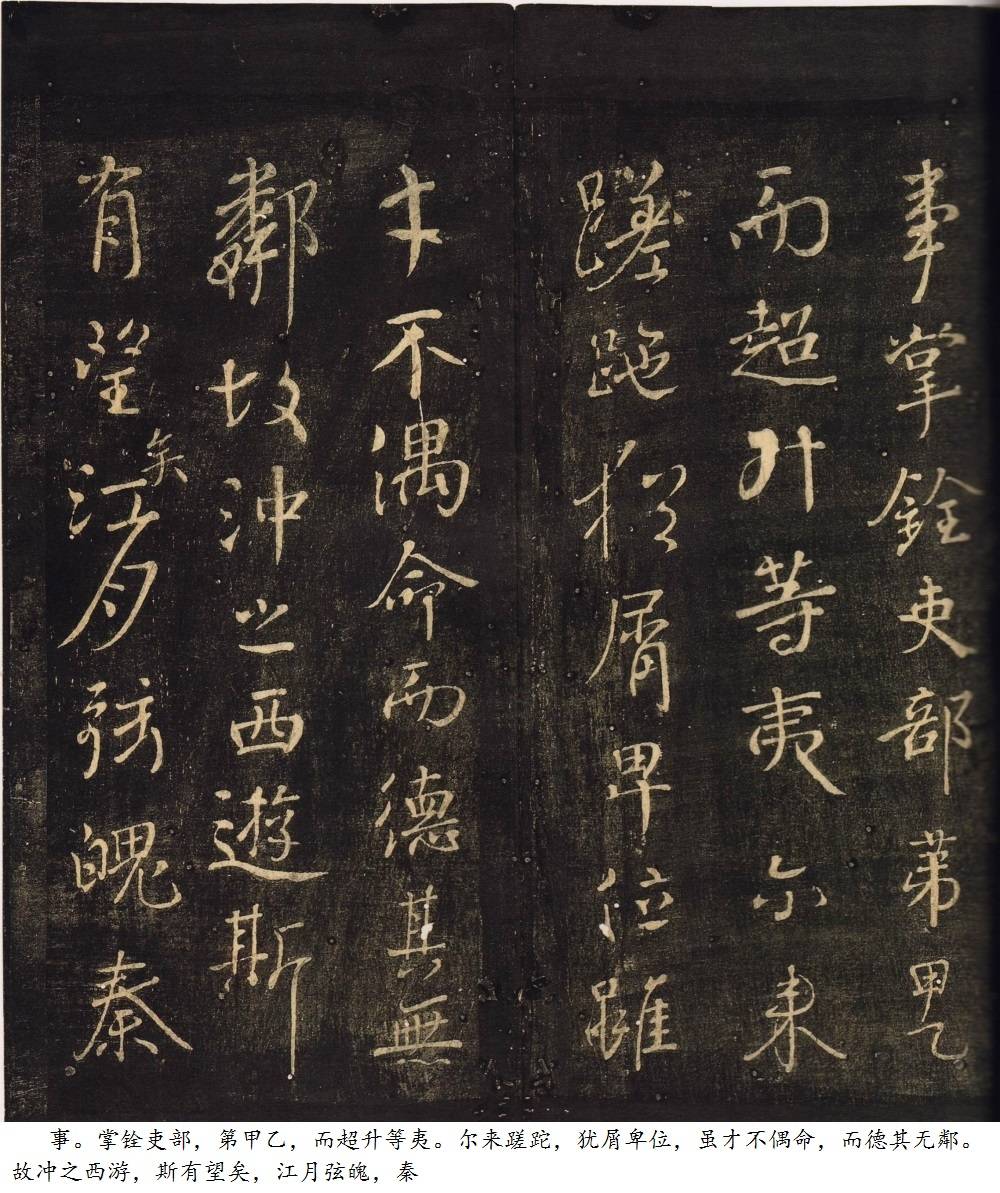 事掌銓吏部第甲乙
而超升等夷尔来
蹉跎猶屑卑位雖
才不偶命而德其無
鄰故冲之西遊斯
有望矣江月弦魄秦
事。掌铨吏部，第甲乙，而超升等夷。尔来蹉跎，犹屑卑位，虽才不偶命，而德其无鄰。
故冲之西游，斯有望矣，江月弦魄，秦